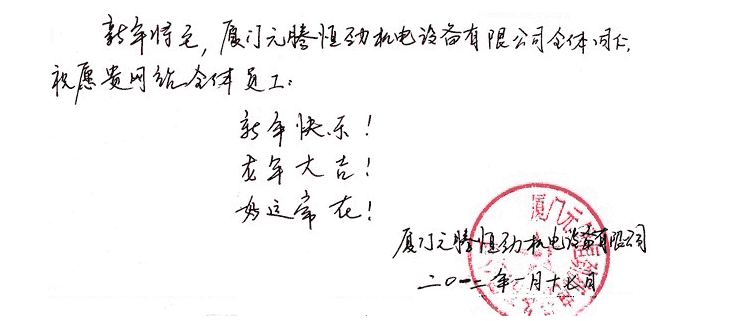 新年将至，厦门元腾恒劲机电设备有限公司全体同仁，
祝愿贵网站全体员工：
新年快乐！
龙年大吉！
好运常在！
厦门元
厦门元腾恒劲机电设备有限公司
二〇一二年一月十七日